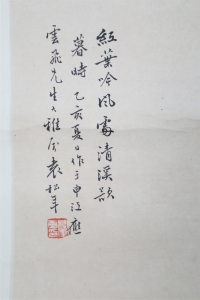 紅葉吟風處清溪影
暮時 乙亥夏日作于申江應
雲飛先生大雅屬 袁松年